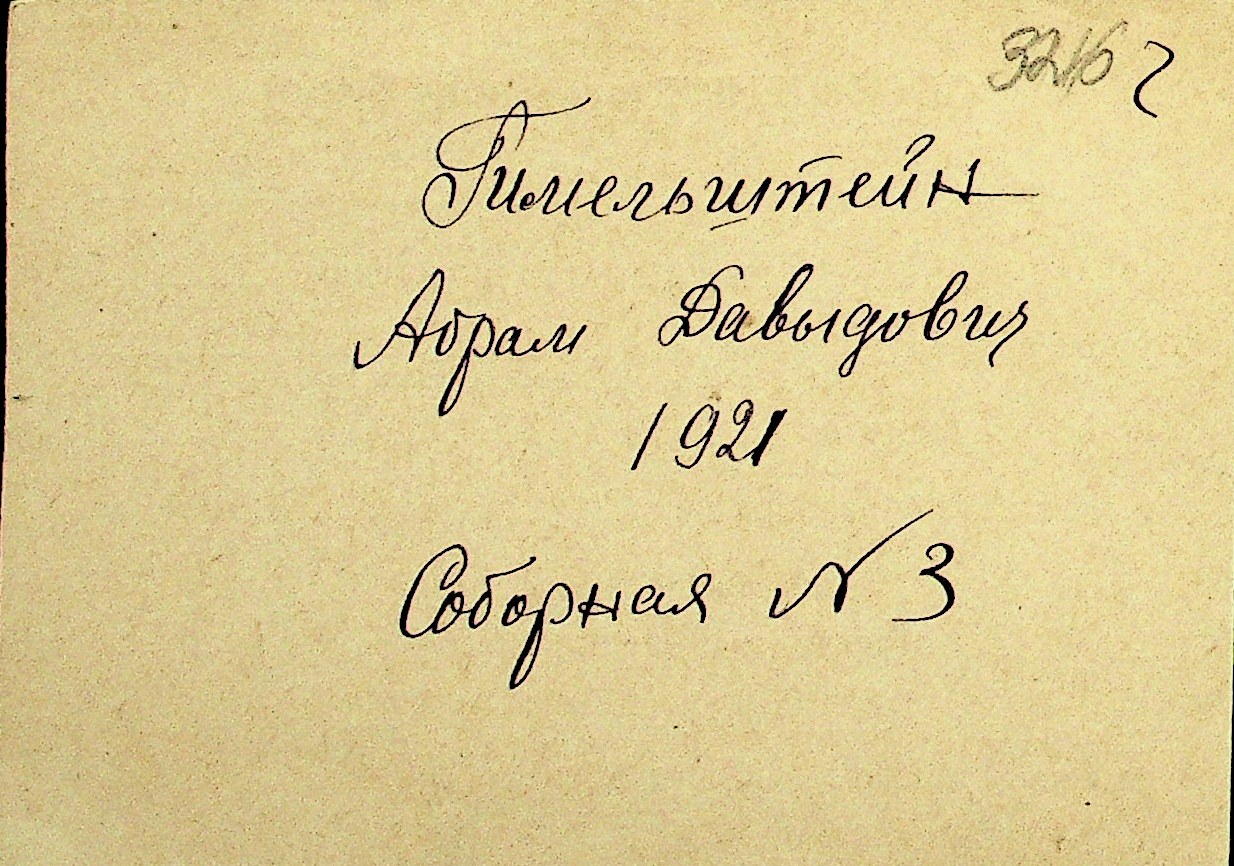 3216 г
Гимельштейн
Абрам Давыдович
1921
Соборная № 3